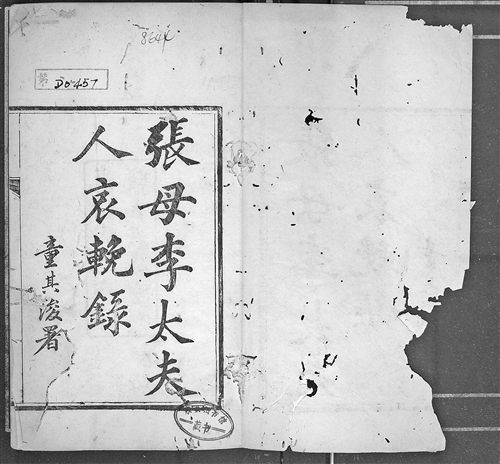 864
D0457
張母李太夫
人哀輓錄
童其浚署